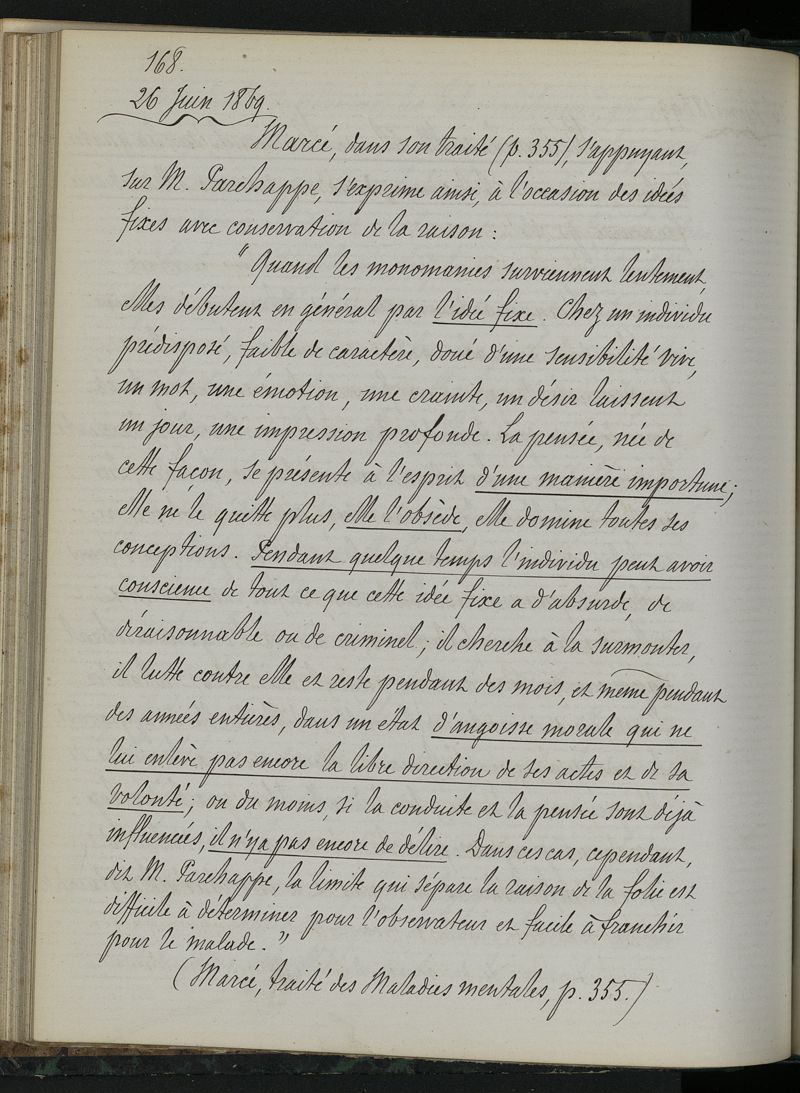 168.
26 Juin 1869.
Marcé, dans son traité (p. 355), s'appuyant,
sur M. Parchappe, s'exprime ainsi, à l'occasion des idées
fixes avec conservation de la raison :
" Quand les monomanies surviennent lentement,
elles débutent en général par l'idée fixe. Chez un individu
prédisposé, faible de caractère, doué d'une sensibilité vive,
un mot, une émotion, une crainte, un désir laissent
un jour, une impression profonde. La pensée, née de
cette façon, se présente à l'esprit d'une manière importune ;
elle ne le quitte plus, elle l'obsède, elle domine toutes ses
conceptions. Pendant quelque temps l'individu peut avoir
conscience de tout ce que cette idée fixe a d'absurde, de
déraisonnable ou de criminel ; il cherche à la surmonter,
il lutte contre elle et reste pendant des mois, et même pendant
des années entières, dans un état d'angoisse morale qui ne
lui enlève pas encore la libre direction de ses actes et de sa
volonté ; ou du moins, si la conduite et la pensée sont déjà
influencées, il n'y a pas encore de délire. Dans ces cas, cependant,
dit M. Parchappe, la limite qui sépare la raison de la folie est
difficile à déterminer pour l'observateur et facile à franchir
pour le malade. "
(Marcé, traité des Maladies mentales, p. 355.)